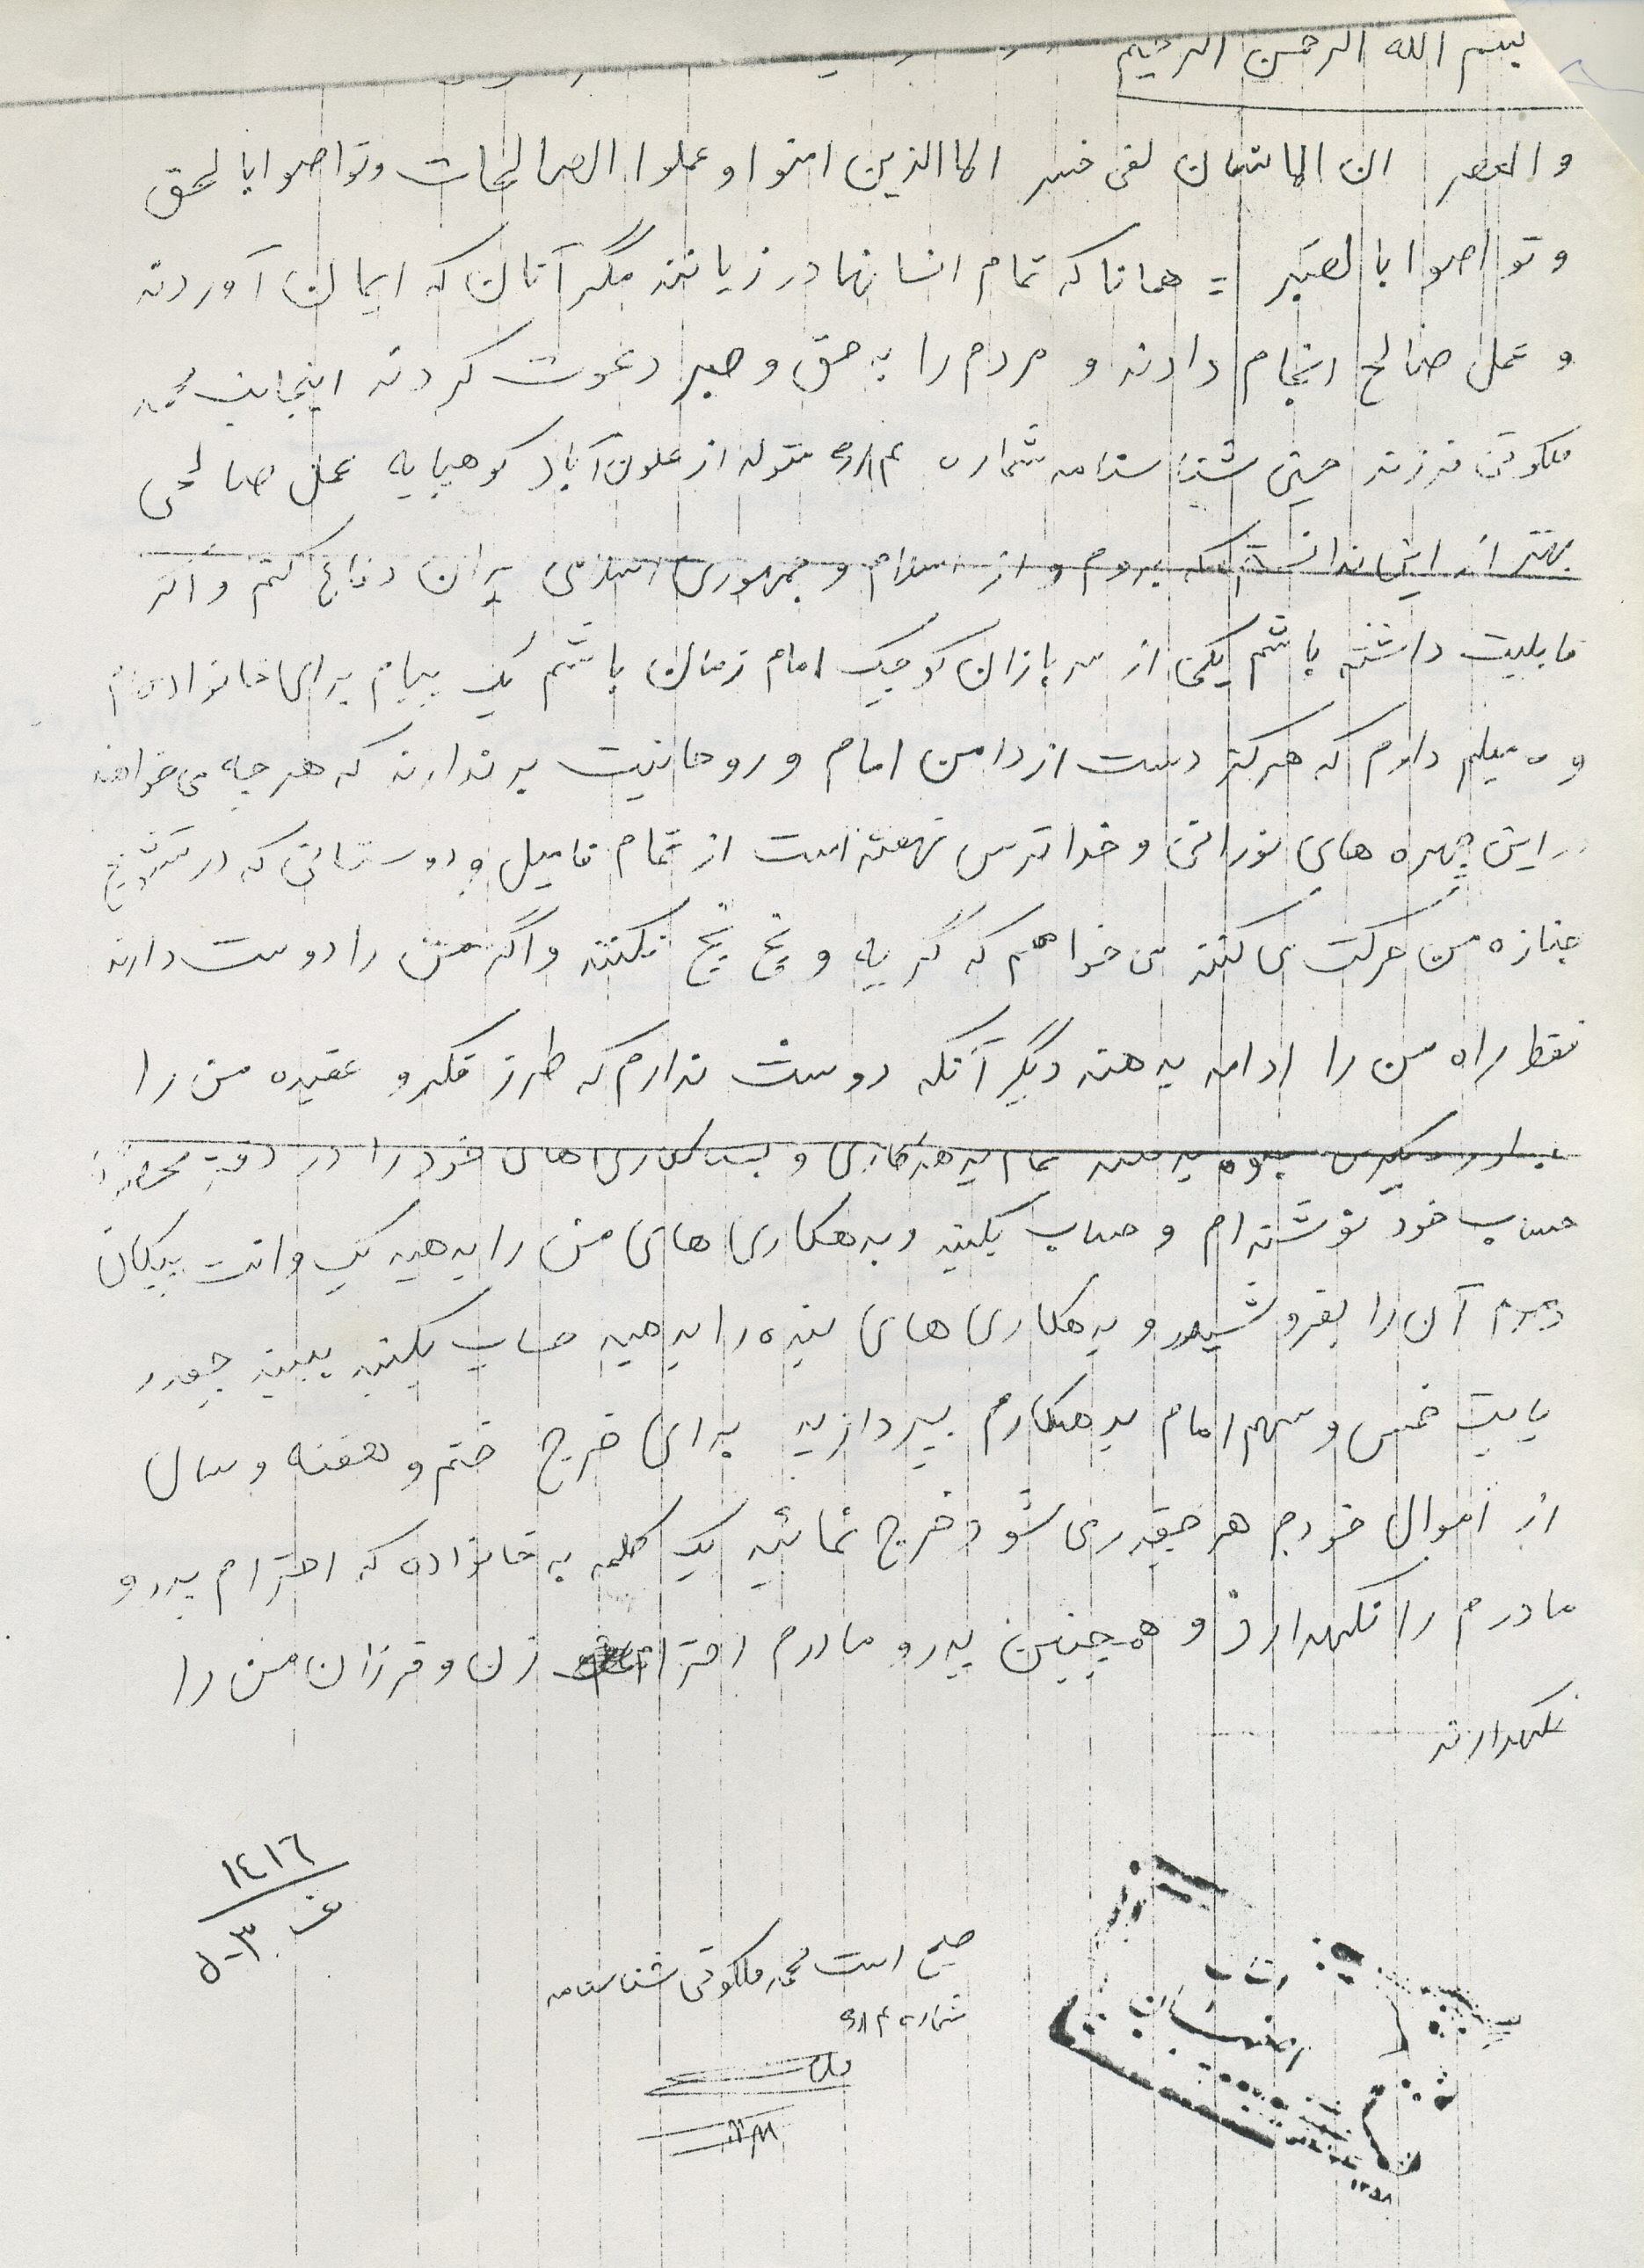 بسم الله الرحمن الرحیم
والعصر ان الانسان لفی خسر الا الذین امنوا وعملوا الصالحات وتواصوا بالحق
وتواصوا بالصبر = همانا که تمام انسانها در زیانند مگر آنان که ایمان آوردند
و عمل صالح انجام دادند و مردم را به حق و صبر دعوت کردند اینجانب محمد
ملکوتی فرزند حسین شناسنامه شماره متولد از علون آباد کوهپایه عمل صالحی
بهتر از این ندانستم که بروم و از اسلام و جمهوری اسلامی ایران دفاع کنم و اگر
قابلیت داشته باشم یکی از سربازان کوچک امام زمان باشم یک پیام برای خانواده‌ام
و فامیلم دارم که هرگز دست از دامن امام و روحانیت برندارند که هر چه می‌خواهند
در این چهره های نورانی و خدا ترس نهفته است از تمام فامیل و دوستانی که در تشییع
جنازه من حرکت می کنند می خواهم که گریه و نکنند واگر من را دوست دارند
فقط راه من را ادامه بدهند دیگر آنکه دوست ندارم که طرز فکر و عقیده من را
جلوه بدهند تمام بدهکاری و بستانکاری های خود را در دفتر
حساب خود نوشته ام و حساب بکنید و بدهکاری های من را بدهید یک وانت پیکان
دارم آن را بفروشید و بدهکاری های بنده را بدهید حساب بکنید ببینید چقدر
بابت خمس و سهم امام بدهکارم بپردازید برای خرج ختم و هفته و سال
از اموال خودم هر چقدر می شود خرج نمائید یک کلمه به خانواده که احترام پدر و
مادرم را نگهدارد و همچنین پدر و مادرم احترام زن و فرزندان من را
نگهدارند
١٤١٦
ف ٣-٥
صحیح است محمد ملکوتی شناسنامه
شماره